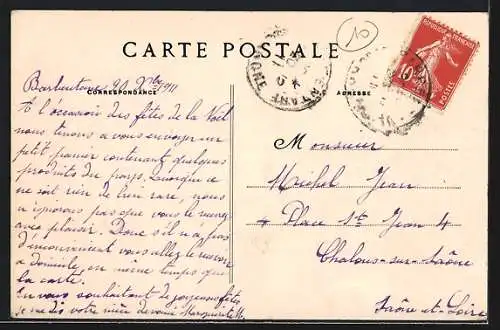 CARTE POSTALE
CORRESPONDANCE
ADRESSE
RÉPUBLIQUE FRANÇAISE
10
POSTES
Barbentane 20 Xbre 1911
A l'occasion des fêtes de la Noël
nous tenons a vous envoyer un
petit panier contenant quelques
produits du pays, Quoique ce
ne soit rien de bien rare, nous
n'ignorons pas que vous le
avec plaisir. Donc s'il n'y a pas
d'inconvénient vous allez le recevoir
a domicile en même temps que
la carte.
En vous souhaitant de joyeuses fêtes
je me dis votre dévouée Marguerite M.
Monsieur
Michel Jean
4 Place St Jean 4
Chalons-sur-Saône
Saône et Loire